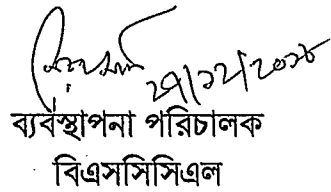 ২৭/১২/২০১৮
ব্যবস্থাপনা পরিচালক
বিএসসিসিএল